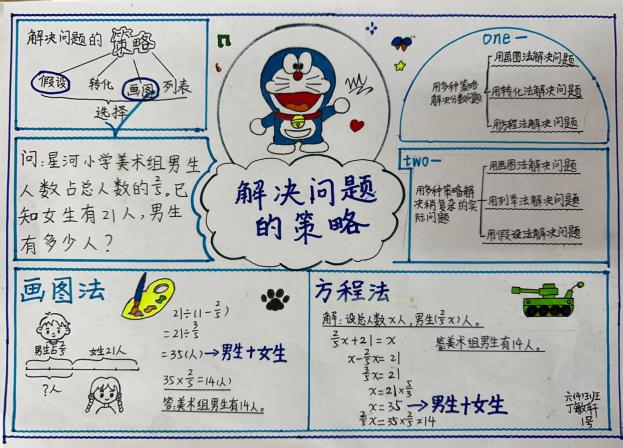 解决问题的策略
假设 转化 画图 列表
选择
问:星河小学美术组男生
人数占总人数的2/5。已
知女生有21人,男生
有多少人?
解决问题
的策略
one一
用多种策略
解决分数问题
用画图法解决问题
用转化法解决问题
用方程法解决问题
two一
用多种策略解
决稍复杂的实
际问题
用画图法解决问题
用列举法解决问题
用假设法解决问题
画图法
男生占2/5 女生21人
?人
21÷(1-2/5)
=21÷3/5
=35(人)→男生+女生
35×2/5=14(人)
答:美术组男生有14人。
方程法
解:设总人数x人,男生(2/5x)人。
2/5x+21=x
x-2/5x=21
3/5x=21
x=21×5/3
x=35 →男生+女生
2/5x=35×2/5=14
答:美术组男生有14人。
六(13)班
丁敏轩
1号